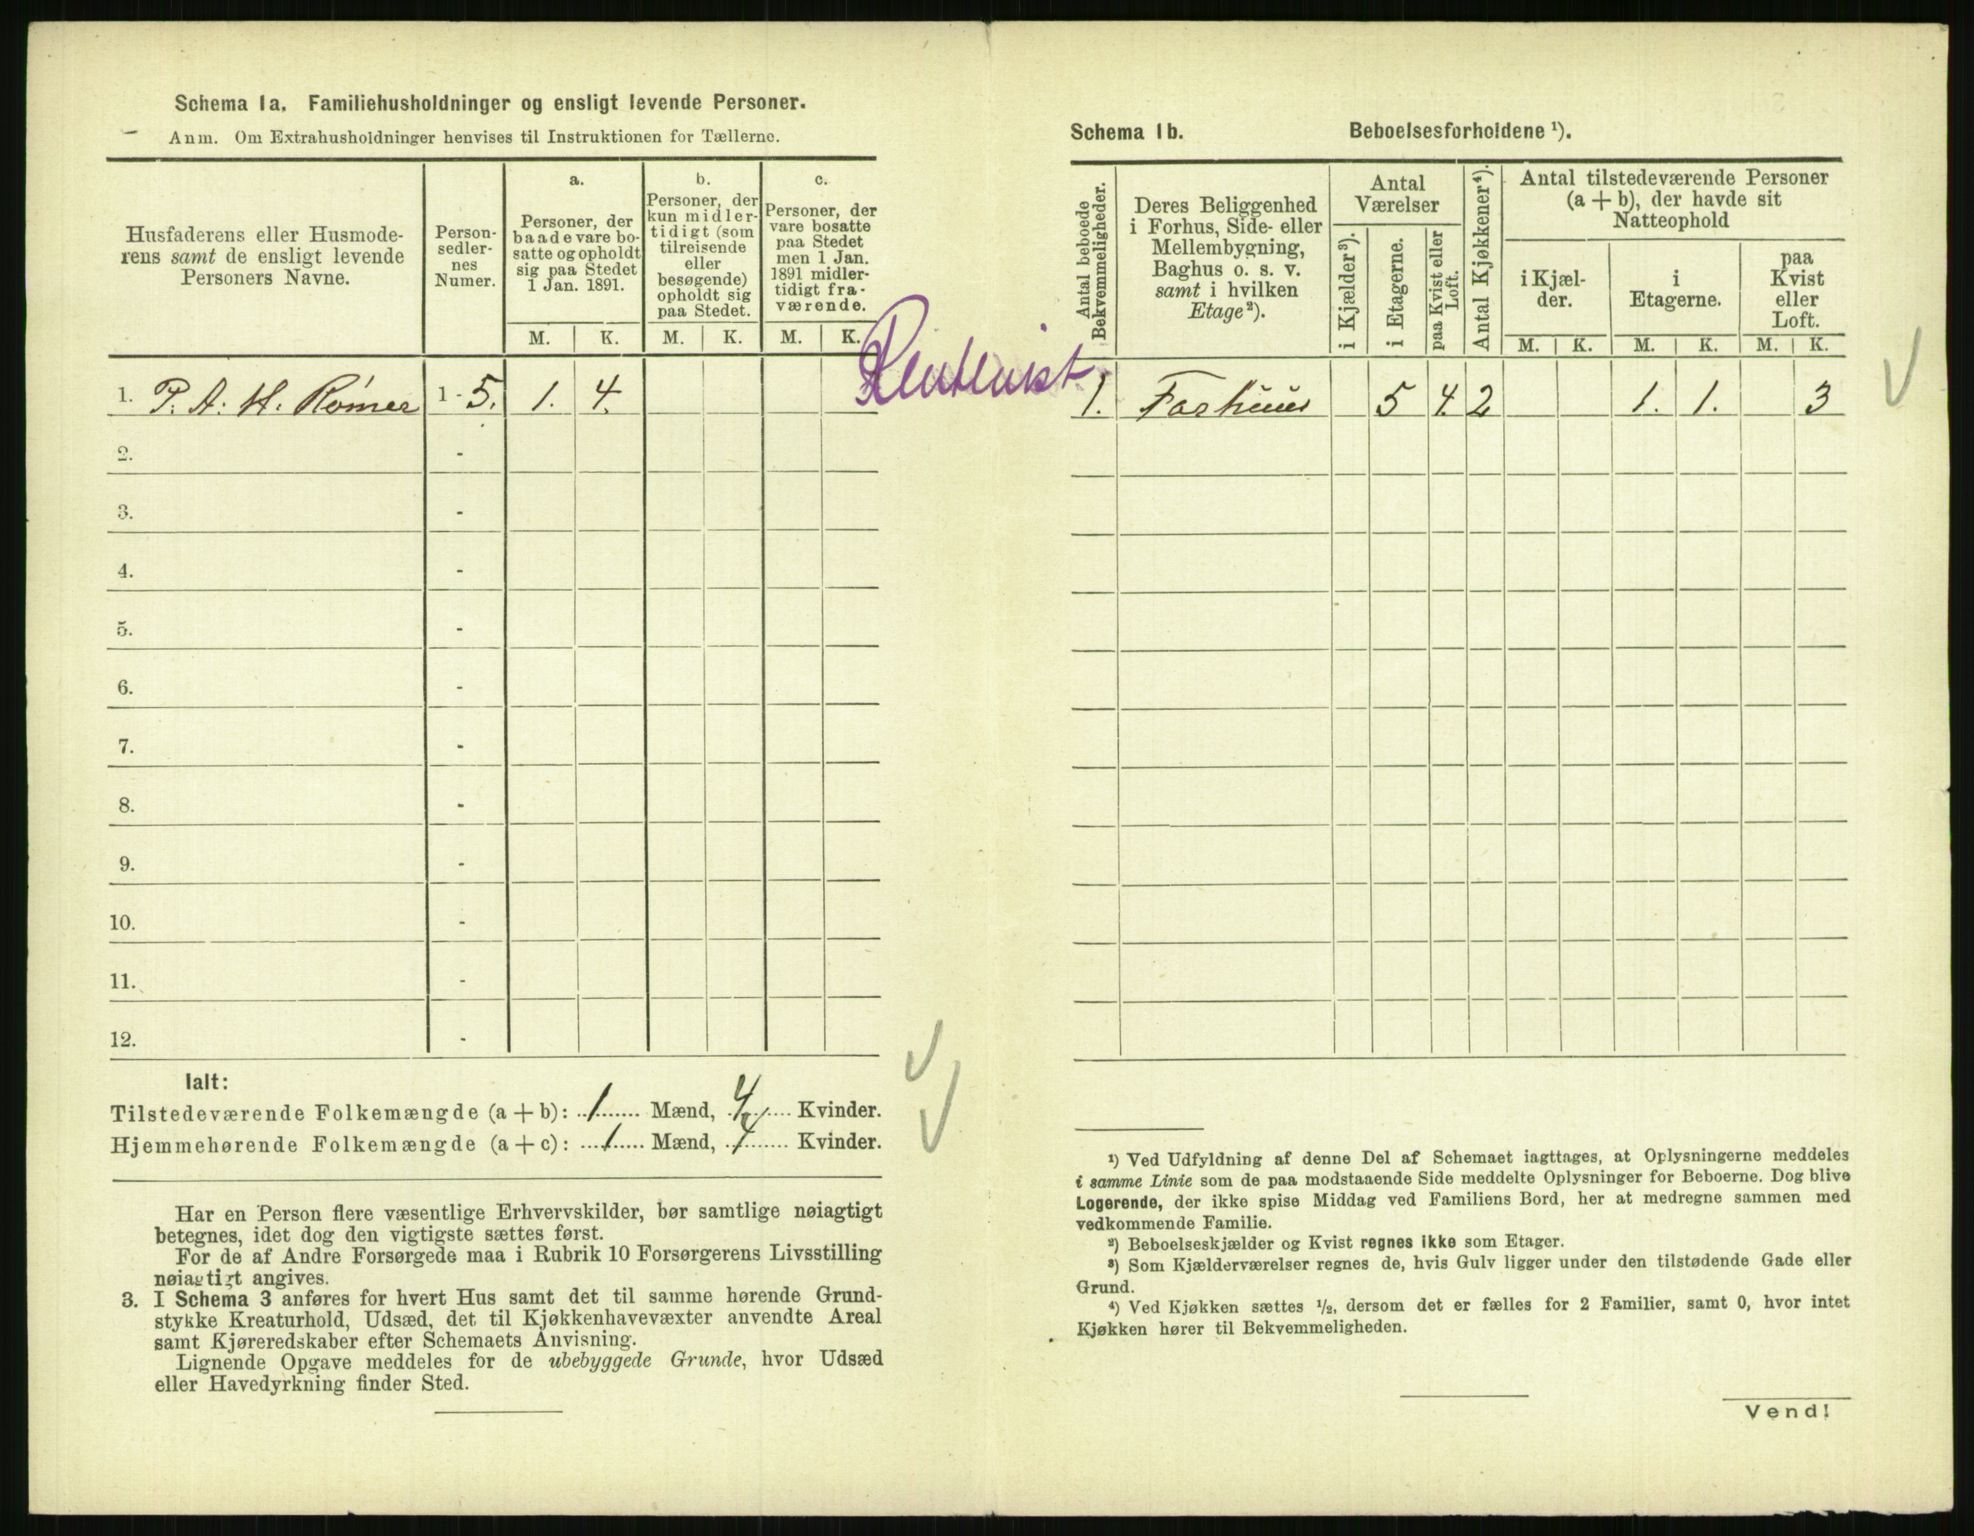 Schema 1a. Familiehusholdninger og ensligt levende Personer.
Anm. Om Extrahusholdninger henvises til Instruktionen for Tællerne.
Husfaderens eller Husmode-
rens samt de ensligt levende
Personers Navne.
Person-
sedler-
nes
Numer.
a.
Personer, der
baade vare bo-
satte og opholdt
sig paa Stedet
1 Jan. 1891.
M. K.
b.
Personer, der
kun midler-
tidigt (som
tilreisende
eller
besøgende)
opholdt sig
paa Stedet.
M. K.
c.
Personer, der
vare bosatte
paa Stedet
men 1 Jan.
1891 midler-
tidigt fra-
værende.
M. K.
1. P. A. H. Rømer 1 - 5. 1. 4.
Rentenist
2. -
3. -
4. -
5. -
6. -
7. -
8. -
9. -
10. -
11. -
12. -
Ialt:
Tilstedeværende Folkemængde (a + b): 1 Mænd, 4 Kvinder.
Hjemmehørende Folkemængde (a + c): 1 Mænd, 4 Kvinder.
Har en Person flere væsentlige Erhvervskilder, bør samtlige nøiagtigt
betegnes, idet dog den vigtigste sættes først.
For de af Andre Forsørgede maa i Rubrik 10 Forsørgerens Livsstilling
nøiagtigt angives.
3. I Schema 3 anføres for hvert Hus samt det til samme hørende Grund-
stykke Kreaturhold, Udsæd, det til Kjøkkenhavevæxter anvendte Areal
samt Kjøreredskaber efter Schemaets Anvisning.
Lignende Opgave meddeles for de ubebyggede Grunde, hvor Udsæd
eller Havedyrkning finder Sted.
Schema 1b. Beboelsesforholdene ¹).
Antal beboede
Bekvemmeligheder.
Deres Beliggenhed
i Forhus, Side- eller
Mellembygning,
Baghus o. s. v.
samt i hvilken
Etage²).
Antal
Værelser
i Kjælder³).
i Etagerne.
paa Kvist eller
Loft.
Antal Kjøkkener⁴).
Antal tilstedeværende Personer
(a + b), der havde sit
Natteophold
i Kjæl-
der.
i
Etagerne.
paa
Kvist
eller
Loft.
M. K. M. K. M. K.
1. Forhuus 5 4. 2 1. 1. 3
¹) Ved Udfyldning af denne Del af Schemaet iagttages, at Oplysningerne meddeles
i samme Linie som de paa modstaaende Side meddelte Oplysninger for Beboerne. Dog blive
Logerende, der ikke spise Middag ved Familiens Bord, her at medregne sammen med
vedkommende Familie.
²) Beboelseskjælder og Kvist regnes ikke som Etager.
³) Som Kjælderværelser regnes de, hvis Gulv ligger under den tilstødende Gade eller
Grund.
⁴) Ved Kjøkken sættes ¹/₂, dersom det er fælles for 2 Familier, samt 0, hvor intet
Kjøkken hører til Bekvemmeligheden.
Vend!